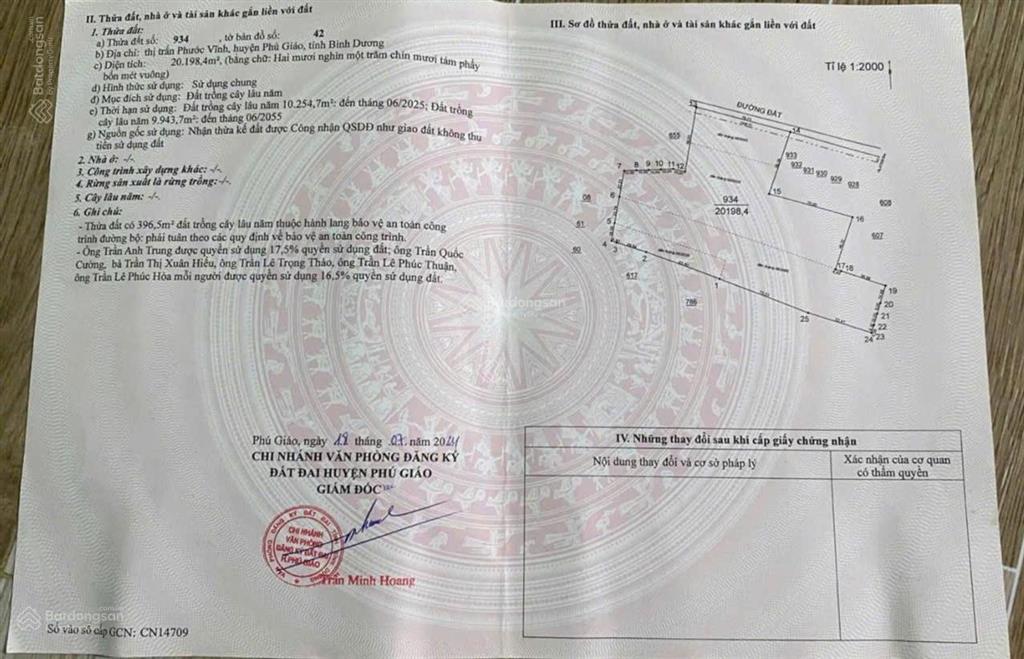 II. Thửa đất, nhà ở và tài sản khác gắn liền với đất
1. Thửa đất:
a) Thửa đất số: 934 , tờ bản đồ số: 42
b) Địa chỉ: thị trấn Phước Vĩnh, huyện Phú Giáo, tỉnh Bình Dương
c) Diện tích: 20.198,4m², (bằng chữ: Hai mươi nghìn một trăm chín mươi tám phẩy
bốn mét vuông)
d) Hình thức sử dụng: Sử dụng chung
đ) Mục đích sử dụng: Đất trồng cây lâu năm
e) Thời hạn sử dụng: Đất trồng cây lâu năm 10.254,7m²: đến tháng 06/2025; Đất trồng
cây lâu năm 9.943,7m²: đến tháng 06/2055
g) Nguồn gốc sử dụng: Nhận thừa kế đất được Công nhận QSDĐ như giao đất không thu
tiền sử dụng đất
2. Nhà ở: -/-
3. Công trình xây dựng khác: -/-
4. Rừng sản xuất là rừng trồng: -/-
5. Cây lâu năm: -/-
6. Ghi chú:
- Thửa đất có 396,5m² đất trồng cây lâu năm thuộc hành lang bảo vệ an toàn công
trình đường bộ: phải tuân theo các quy định về bảo vệ an toàn công trình.
- Ông Trần Anh Trung được quyền sử dụng 17,5% quyền sử dụng đất; ông Trần Quốc
Cường, bà Trần Thị Xuân Hiếu, ông Trần Lê Trọng Thảo, ông Trần Lê Phúc Thuận,
ông Trần Lê Phúc Hòa mỗi người được quyền sử dụng 16,5% quyền sử dụng đất.
Phú Giáo, ngày 18 tháng 07 năm 2024
CHI NHÁNH VĂN PHÒNG ĐĂNG KÝ
ĐẤT ĐAI HUYỆN PHÚ GIÁO
GIÁM ĐỐC
CHI NHÁNH
VĂN PHÒNG
ĐĂNG KÝ ĐẤT ĐAI
H. PHÚ GIÁO
Trần Minh Hoang
Số vào sổ cấp GCN: CN14709
III. Sơ đồ thửa đất, nhà ở và tài sản khác gắn liền với đất
Tỉ lệ 1:2000
ĐƯỜNG ĐẤT
13
14
655
933
932
931
930
929
928
7 8 9 10 11 12
6
934
20198,4
15
608
16
5
61
607
4
3
60
2
617
1
1718
19
786
20
25
21
22
24 23
IV. Những thay đổi sau khi cấp giấy chứng nhận
Nội dung thay đổi và cơ sở pháp lý
Xác nhận của cơ quan
có thẩm quyền
Batdongsan
by PropertyGuru
Batdongsan
Batdongsan
Batdongsan